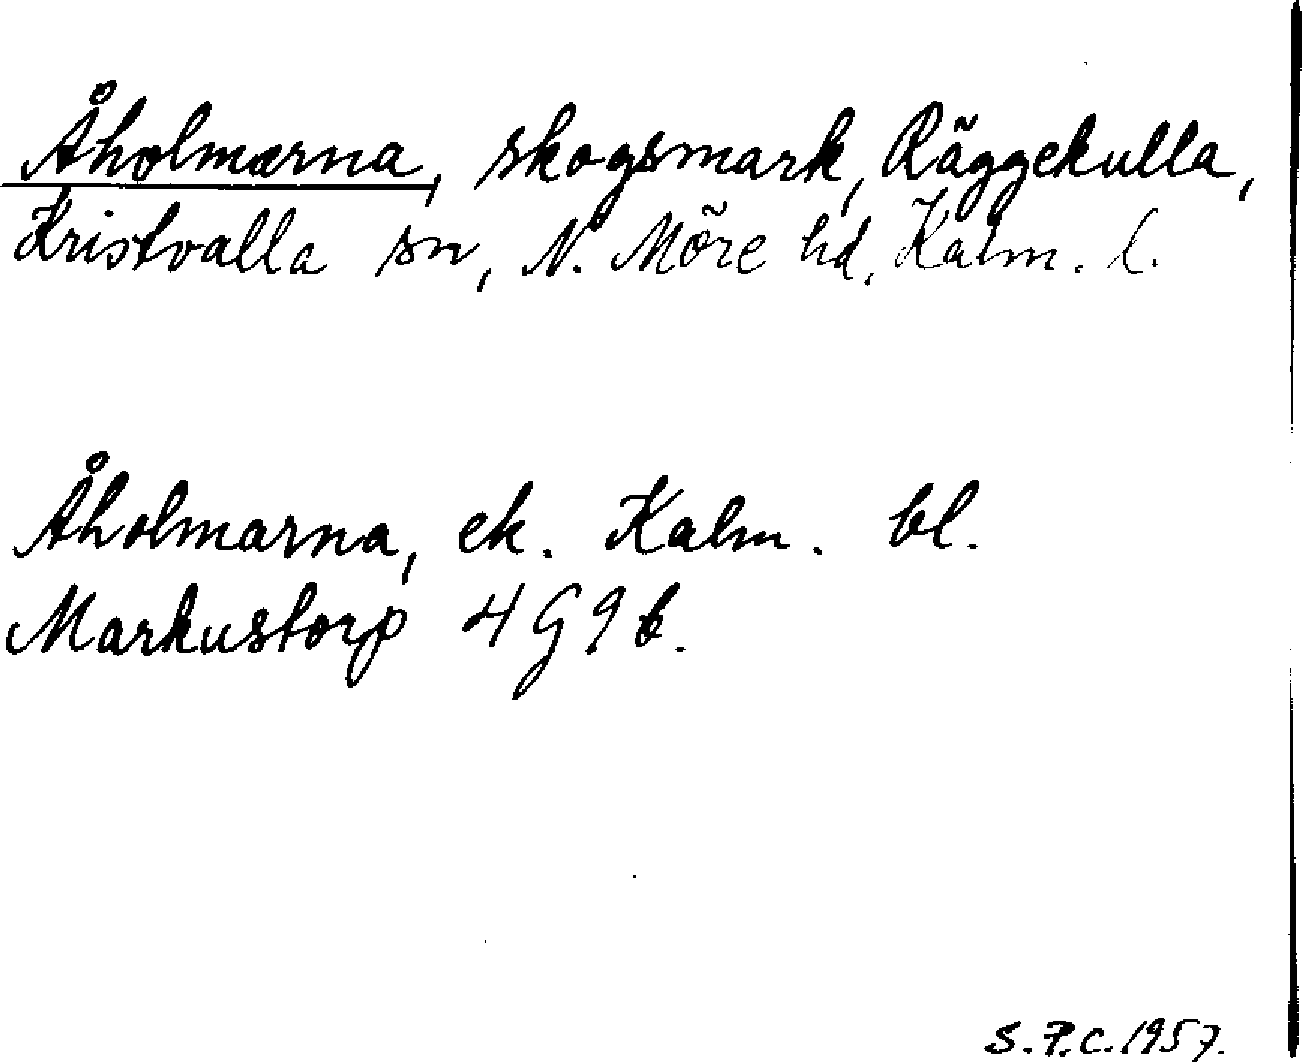 Åholmarna, skogsmark, Räggekulla,
Kristvalla sn, N. Möre hd, Kalm. l.
Åholmarna, ek. Kalm. bl.
Markustorp 4G9b.
S.P.C. 1957.